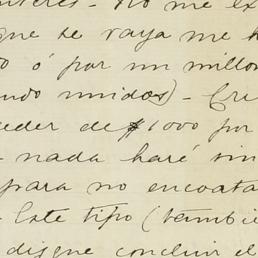 interes. - No me ex
que se vaya me h
o ó por un millon
ndo unidos) - Cre
eder de $1000 por
- nada haré sin
para no enconta
- Este tipo (tambie
disque concluir el